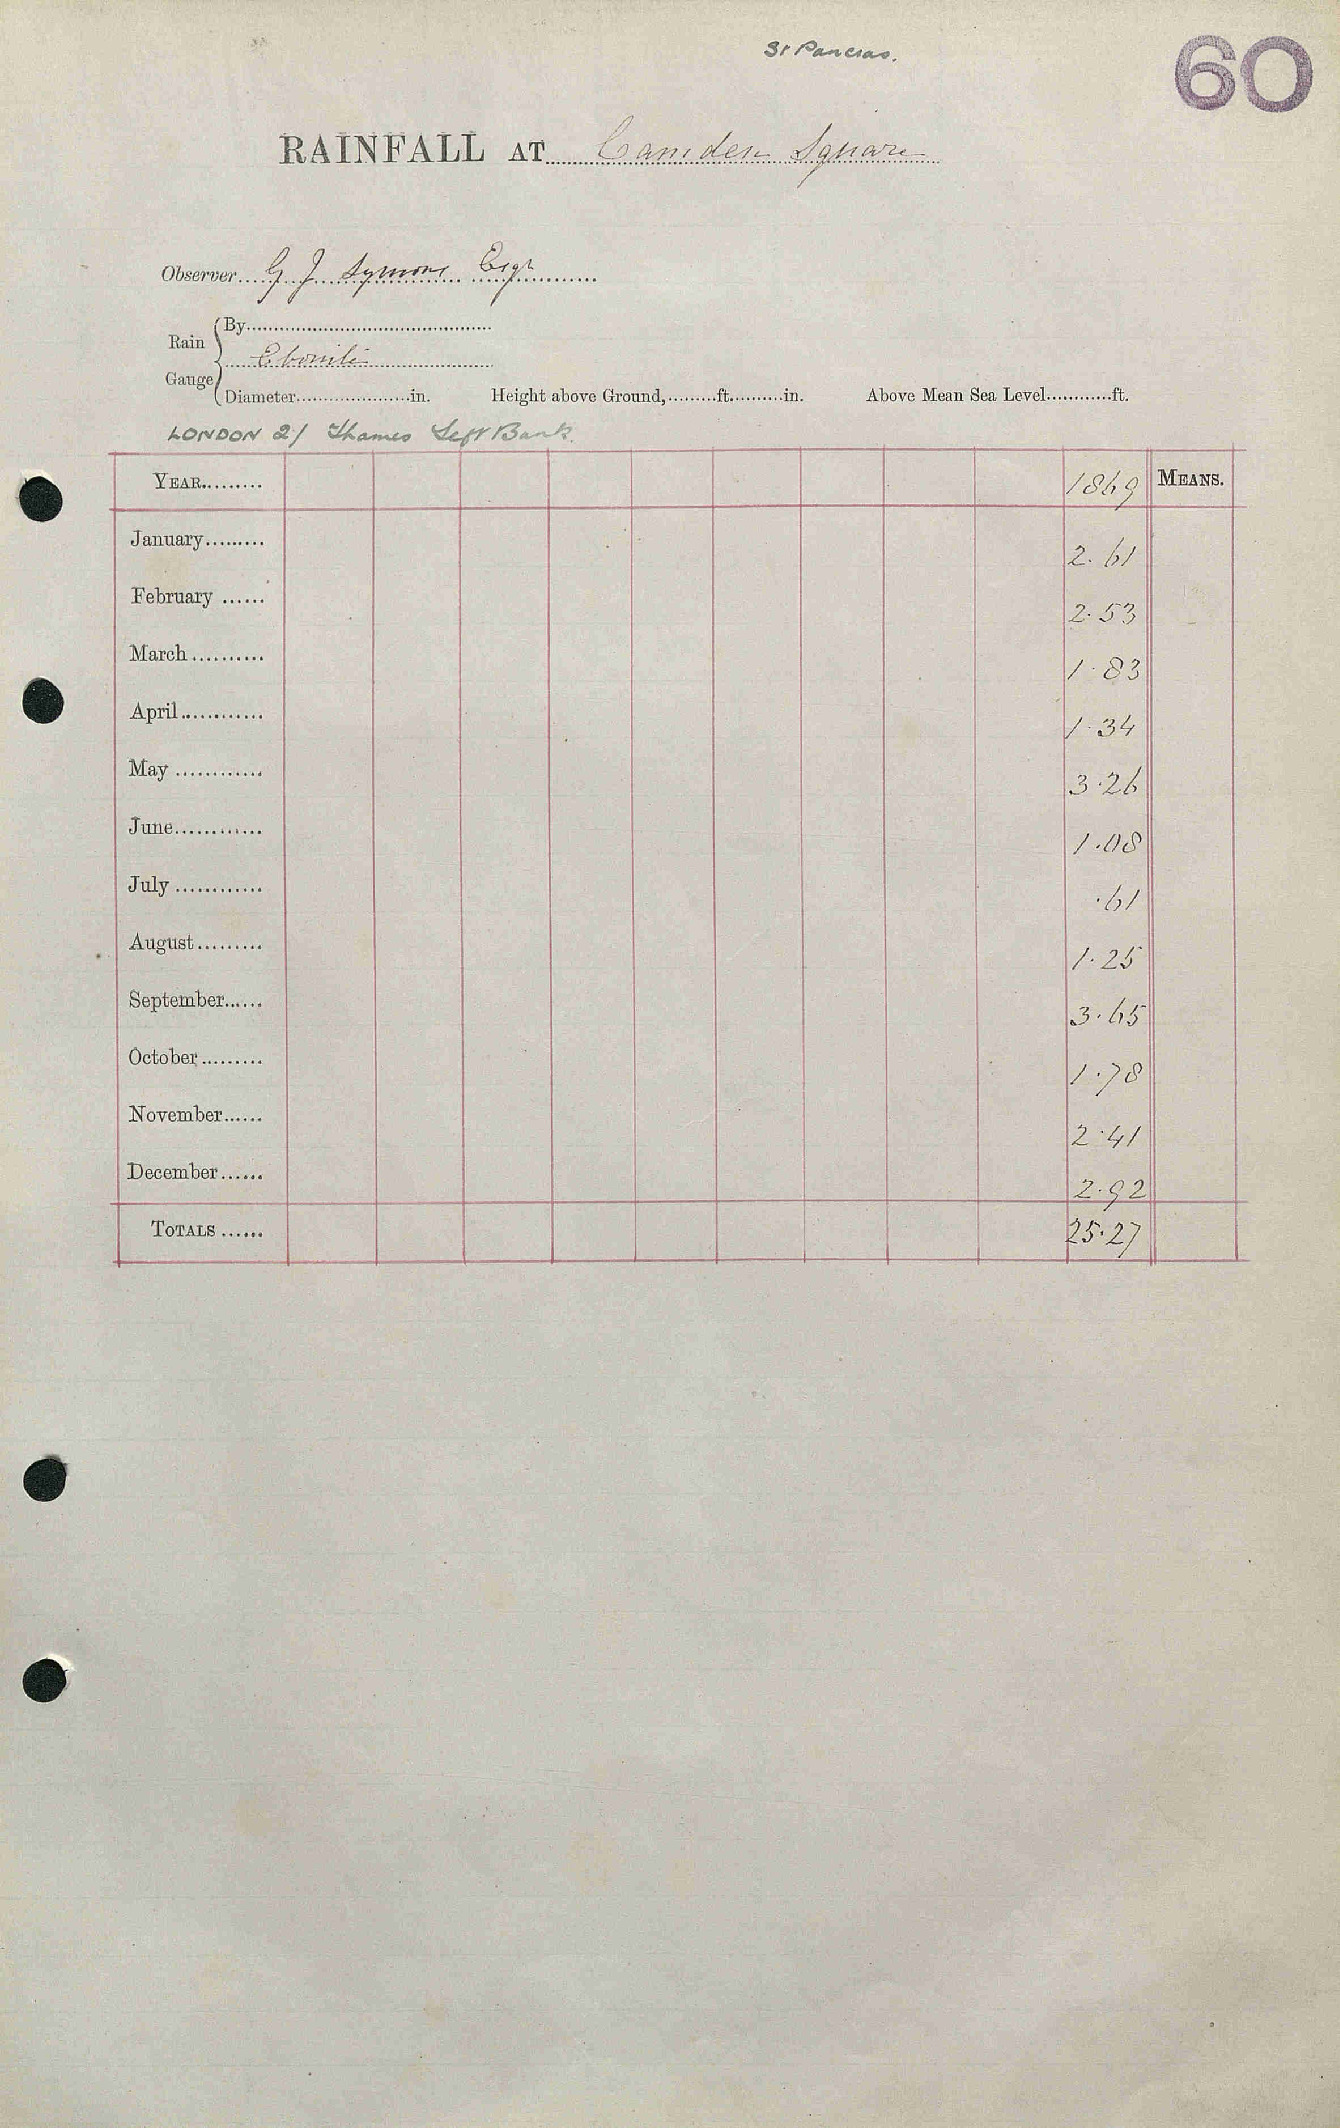 St Pancras.
60
RAINFALL AT Camden Square
Observer G J Symons Esqr
Rain Gauge
By
Ebonite
Diameter in. Height above Ground, ft. in. Above Mean Sea Level ft.
LONDON 21 Thames Left Bank.
YEAR 1869 MEANS.
January 2.61
February 2.53
March 1.83
April 1.34
May 3.26
June 1.08
July .61
August 1.25
September 3.65
October 1.78
November 2.41
December 2.92
TOTALS 25.27